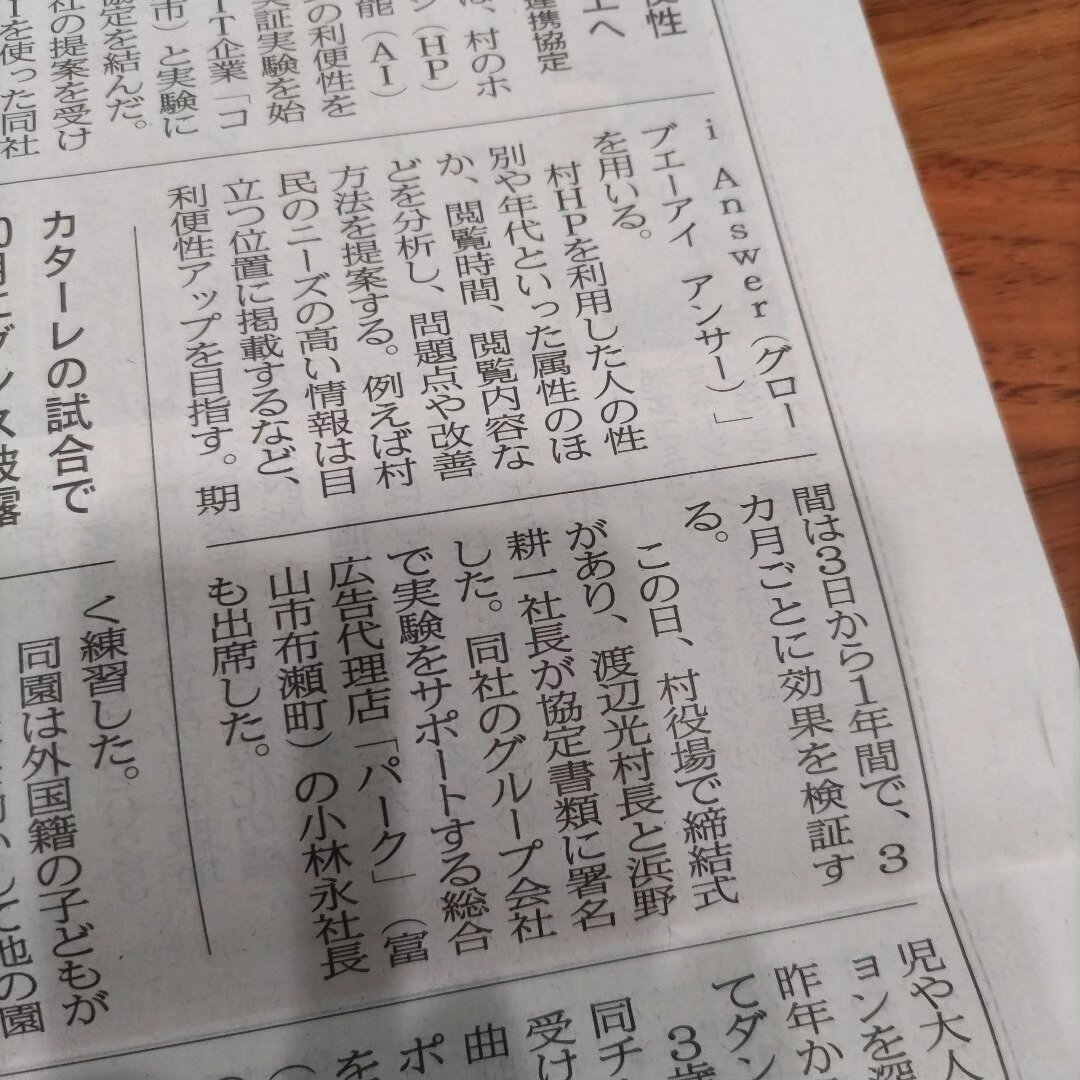 便性
上へ
連携協定
は、村のホ
ジ（HP）
能（AI）
の利便性を
実証実験を始
IT企業「コ
市）と実験に
協定を結んだ。
社の提案を受け
を使った同社
i Answer（グロー
ブエーアイ アンサー）」
を用いる。
村HPを利用した人の性
別や年代といった属性のほ
か、閲覧時間、閲覧内容な
どを分析し、問題点や改善
方法を提案する。例えば村
民のニーズの高い情報は目
立つ位置に掲載するなど、
利便性アップを目指す。期
間は3日から1年間で、3
カ月ごとに効果を検証す
る。
この日、村役場で締結式
があり、渡辺光村長と浜野
耕一社長が協定書類に署名
した。同社のグループ会社
で実験をサポートする総合
広告代理店「パーク」（富
山市布瀬町）の小林永社長
も出席した。
カターレの試合で
く練習した。
同園は外国籍の子どもが
児や大人
ョンを深
昨年か
てダン
3歳
同チ
受け
曲
ポ
を